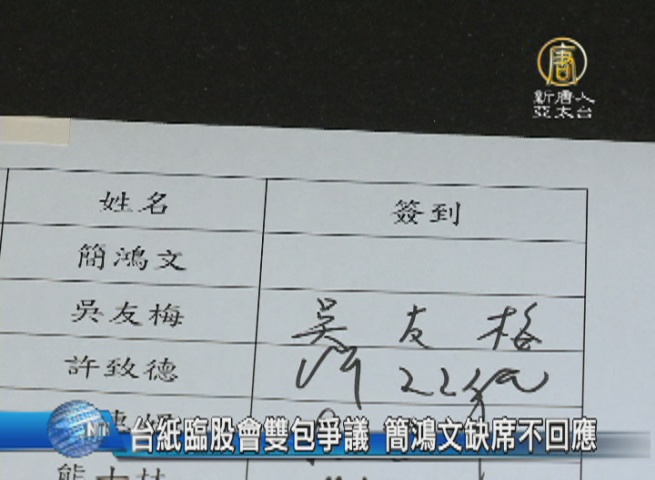 唐
新唐人
亞太台
姓名 簽到
簡鴻文
吳友梅 吳友梅
許致德
台紙臨股會雙包爭議 簡鴻文缺席不回應
熊